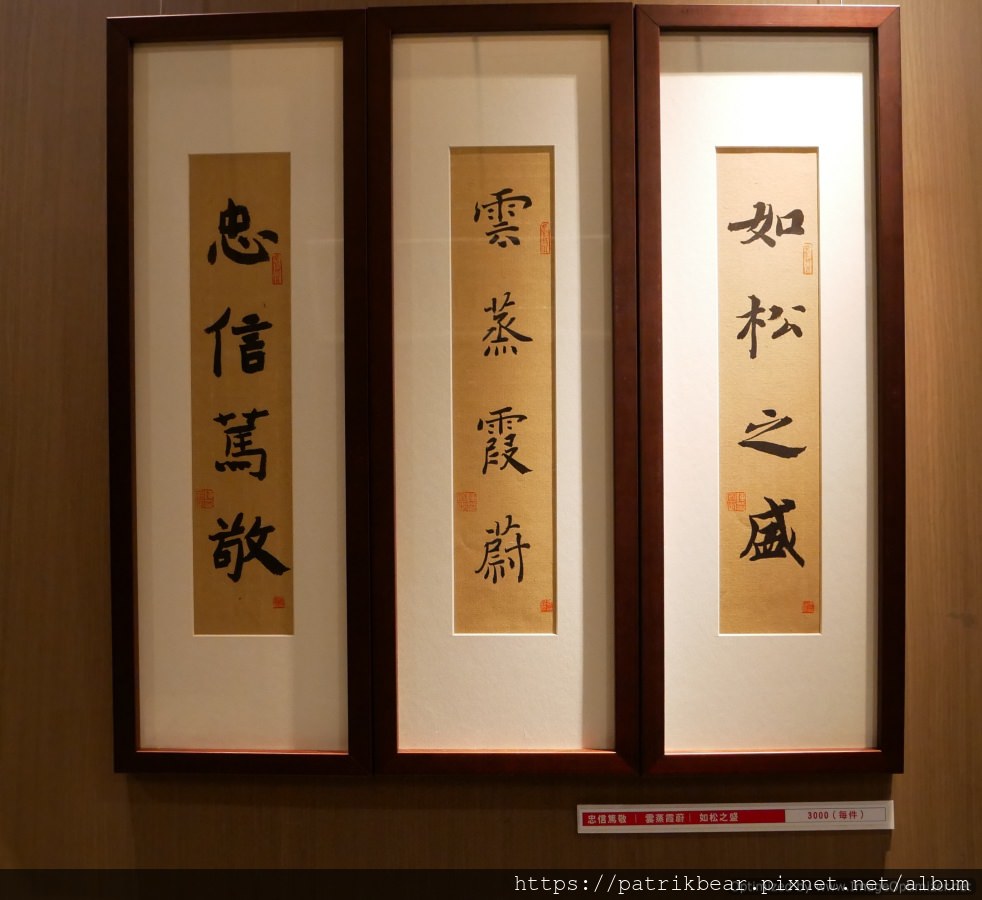 忠信篤敬
雲蒸霞蔚
如松之盛
忠信篤敬 | 雲蒸霞蔚 | 如松之盛 3000(每件)
https://patrikbear.pixnet.net/album